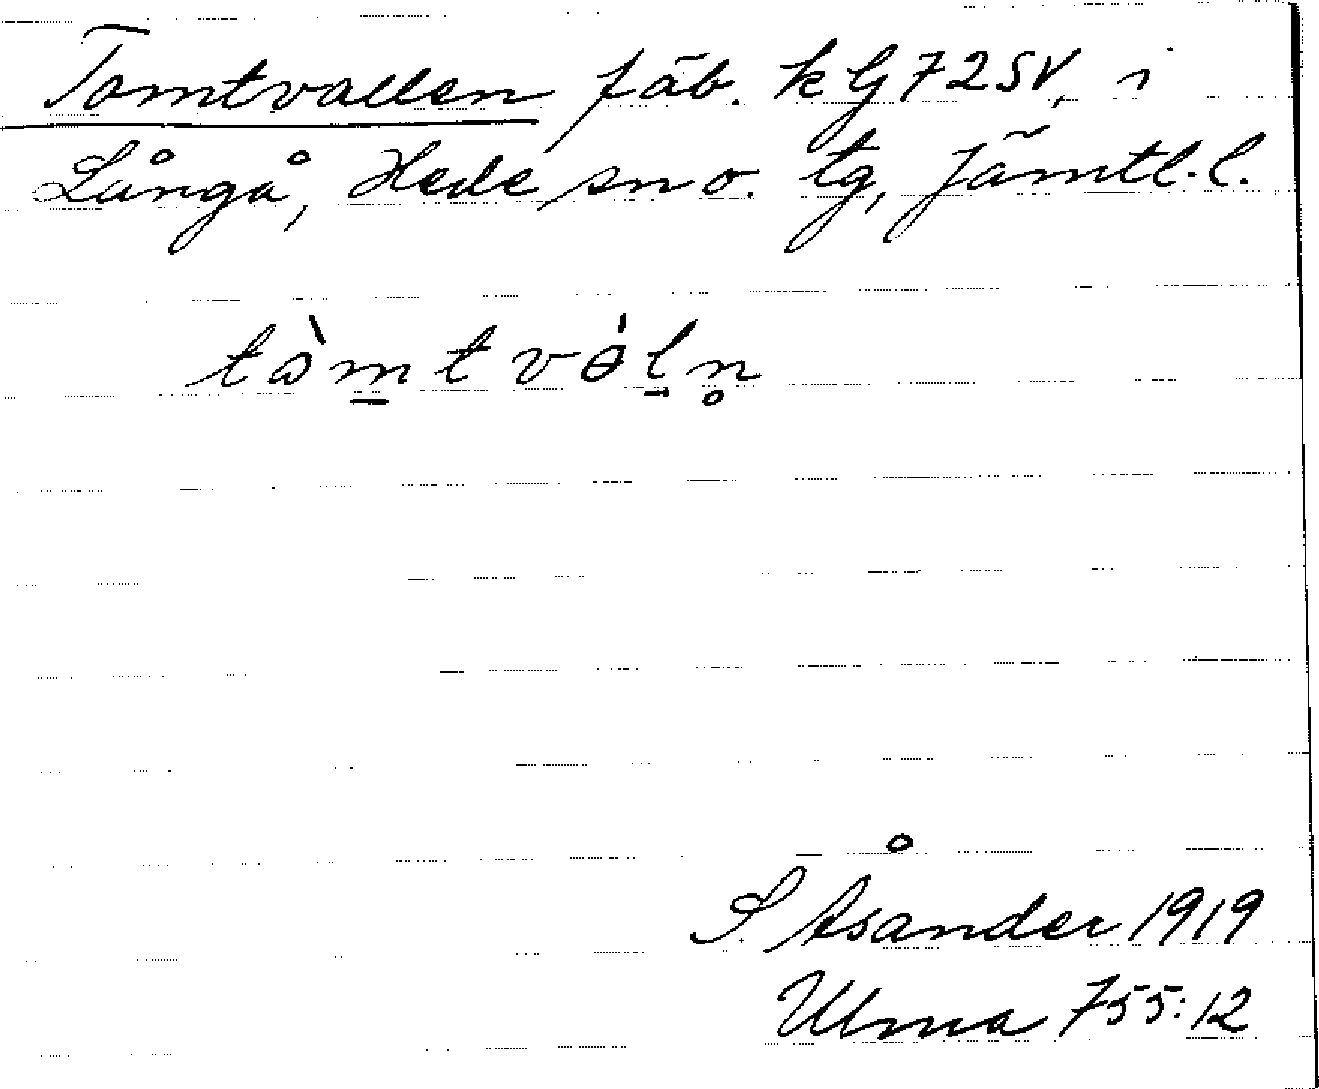 Tomtvallen fäb. k G 72 SV, i
Långå, Hede sn o. tg, Jämtl. l.
tɷ̀m̠tvɵ́l̠n̥
S Åsander 1919
Ulma 755:12